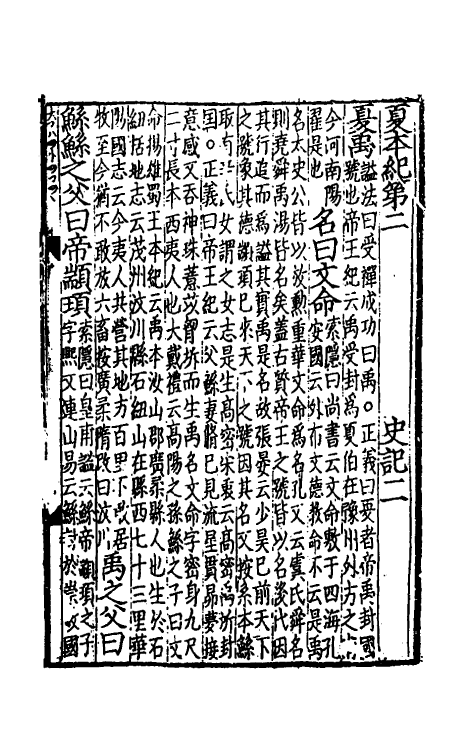 夏本紀第二 史記二
夏禹謚法曰受禪成功曰禹。正義曰夏者帝禹封國
號也帝王紀云禹受封爲夏伯在豫州外方之
今河南陽翟是也名曰文命索隱曰尚書云文命敷于四海孔
安國云外布文德教命不云是禹
名太史公皆以放勲重華文命爲名孔又云虞氏舜名
則堯舜禹湯皆名矣蓋古賢帝王之號皆以名後代因
其行追而爲謚其實禹是名故張晏云少昊已前天下
之號象其德顓頊已來天下之號因其名又按系本鯀
取有氏女謂之女志是生高密宋衷云高密禹所封
國。正義曰帝王紀云父鯀妻脩己見流星貫昴夢接
意感又吞神珠薏苡胷坼而生禹名文命字密身九尺
二寸長本西夷人也大戴禮云高陽之孫鯀之子曰文
命揚雄蜀王本紀云禹本汶山郡廣柔縣人也生於石
紐括地志云茂州汶川縣石紐山在縣西七十三里華
陽國志云今夷人共營其地方百里不敢居
牧至今猶不敢放六畜按廣柔隋改曰汶川禹之父曰
鯀鯀之父曰帝顓頊索隱曰皇甫謐云鯀帝顓頊之子
字熙又連山易云鯀封於崇國